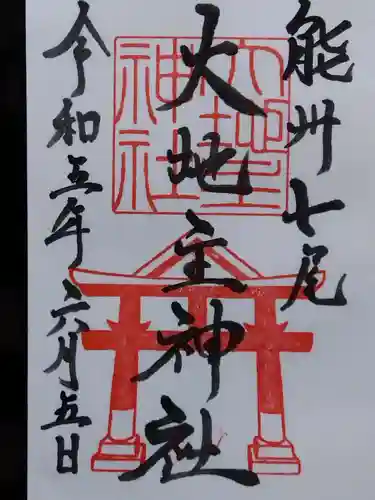 能州七尾
大地主神社
令和五年六月五日
大地主
神社